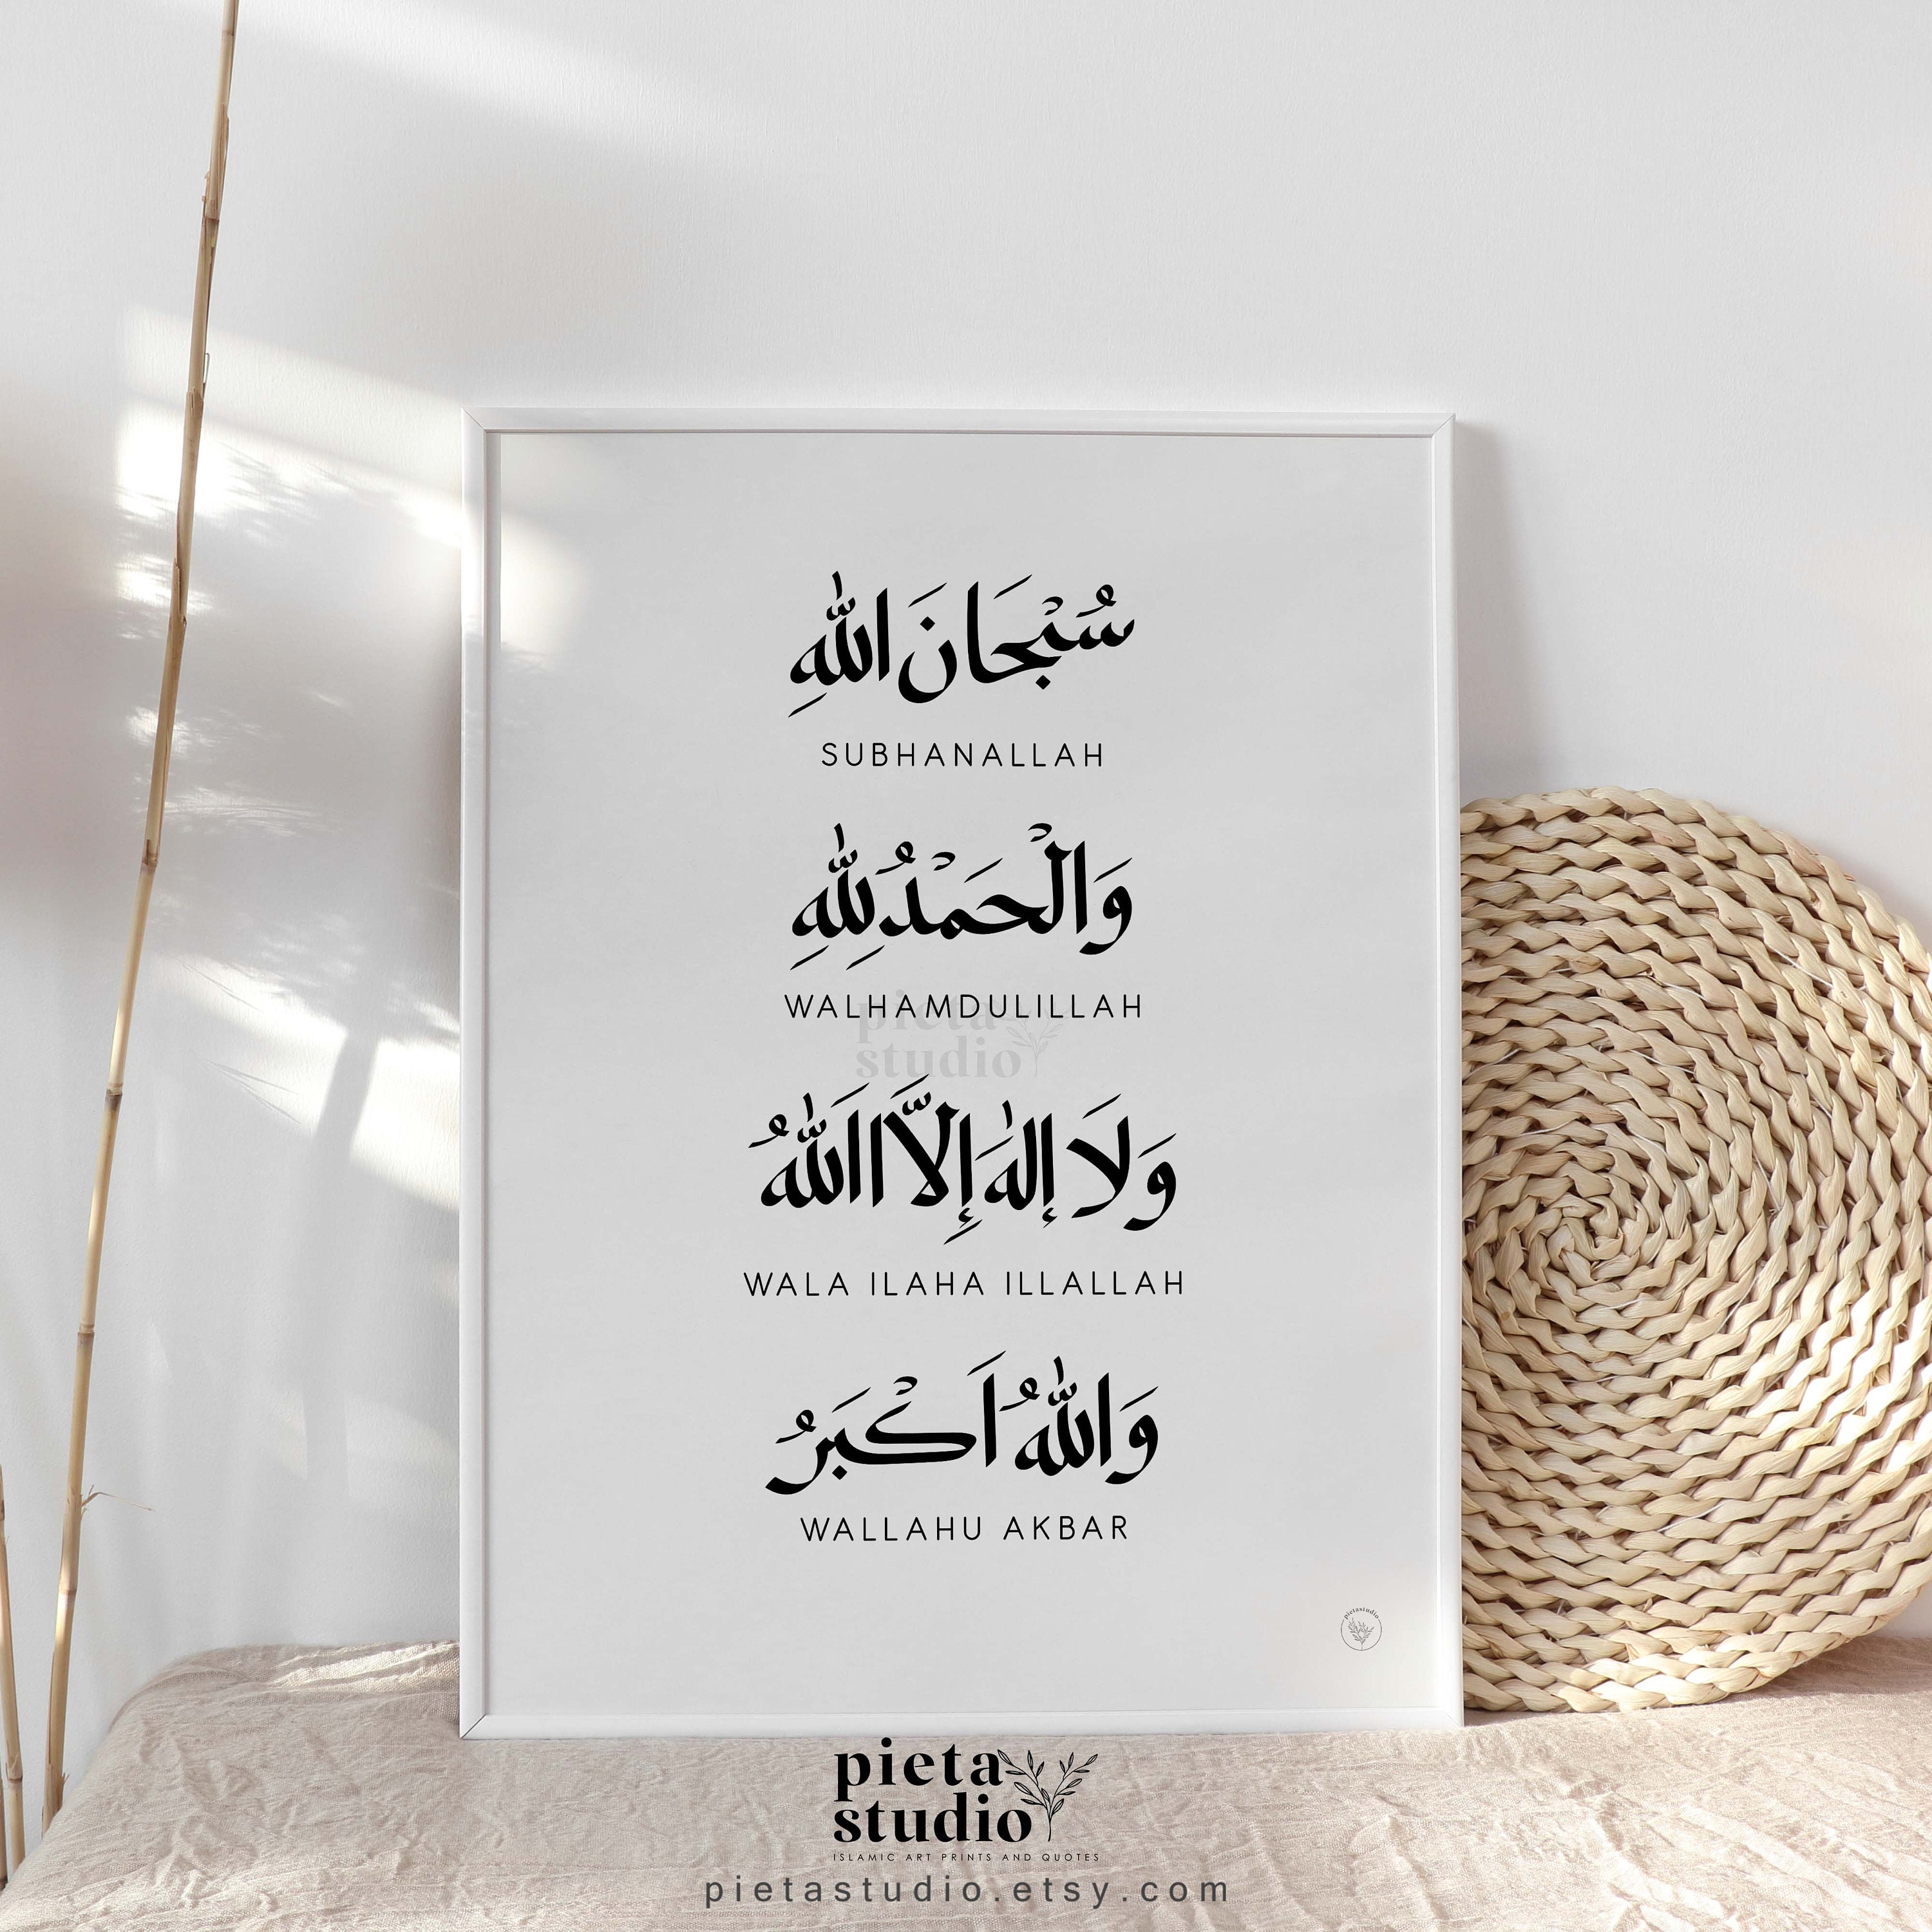 سُبْحَانَ اللّٰهِ
SUBHANALLAH
وَالْحَمْدُ لِلّٰهِ
WALHAMDULILLAH
pieta
studio
وَلَا إِلٰهَ إِلَّا اللّٰهُ
WALA ILAHA ILLALLAH
وَاللّٰهُ اَكْبَرُ
WALLAHU AKBAR
pietastudio
pieta
studio
ISLAMIC ART PRINTS AND QUOTES
pietastudio.etsy.com